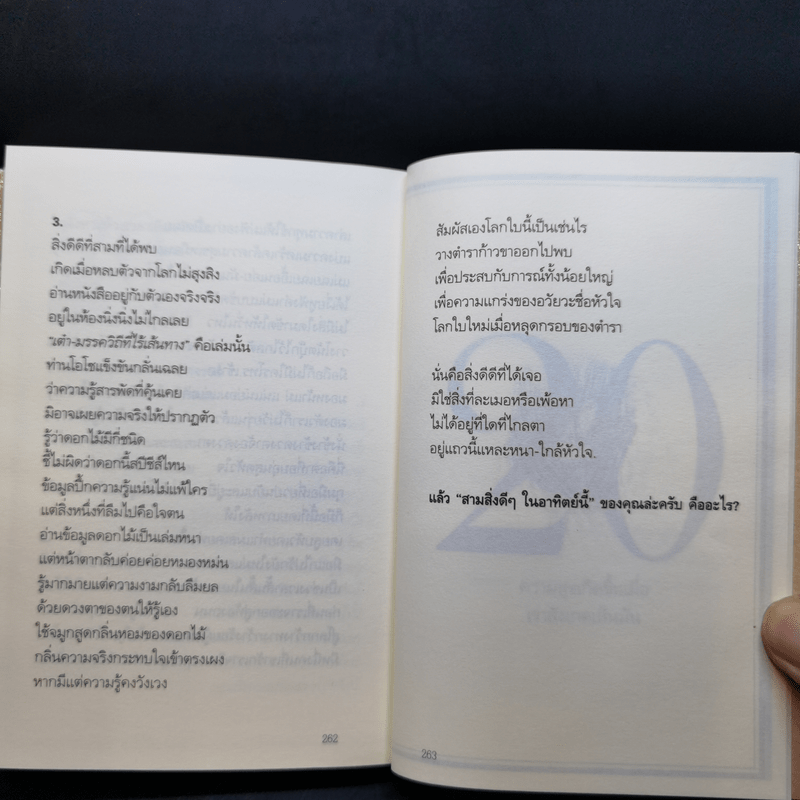 3.
สิ่งดีดีที่สามที่ได้พบ
เกิดเมื่อหลบตัวจากโลกไม่สูงสิง
อ่านหนังสืออยู่กับตัวเองจริงจริง
อยู่ในห้องนิ่งนิ่งไม่ไกลเลย
"เต๋า-มรรควิถีที่ไร้เส้นทาง" คือเล่มนั้น
ท่านโอโชแข็งขันกลั่นเฉลย
ว่าความรู้สารพัดที่คุ้นเคย
มิอาจเผยความจริงให้ปรากฏตัว
รู้ว่าดอกไม้มีกี่ชนิด
ชี้ไม่ผิดว่าดอกนี้สปีชีส์ไหน
ข้อมูลปึ้กความรู้แน่นไม่แพ้ใคร
แต่สิ่งหนึ่งที่ลืมไปคือใจตน
อ่านข้อมูลดอกไม้เป็นเล่มหนา
แต่หน้าตากลับค่อยค่อยหมองหม่น
รู้มากมายแต่ความงามกลับลืมยล
ด้วยดวงตาของตนให้รู้เอง
ใช้จมูกสูดกลิ่นหอมของดอกไม้
กลิ่นความจริงกระทบใจเข้าตรงเผง
หากมีแต่ความรู้คงวังเวง
262
สัมผัสเองโลกใบนี้เป็นเช่นไร
วางตำราก้าวขาออกไปพบ
เพื่อประสบกับการณ์ทั้งน้อยใหญ่
เพื่อความแกร่งของอวัยวะชื่อหัวใจ
โลกใบใหม่เมื่อหลุดกรอบของตำรา
นั่นคือสิ่งดีดีที่ได้เจอ
มิใช่สิ่งที่ละเมอหรือเพ้อหา
ไม่ได้อยู่ที่ใดที่ไกลตา
อยู่แถวนี้แหละหนา-ใกล้หัวใจ.
แล้ว "สามสิ่งดีๆ ในอาทิตย์นี้" ของคุณล่ะครับ คืออะไร?
263